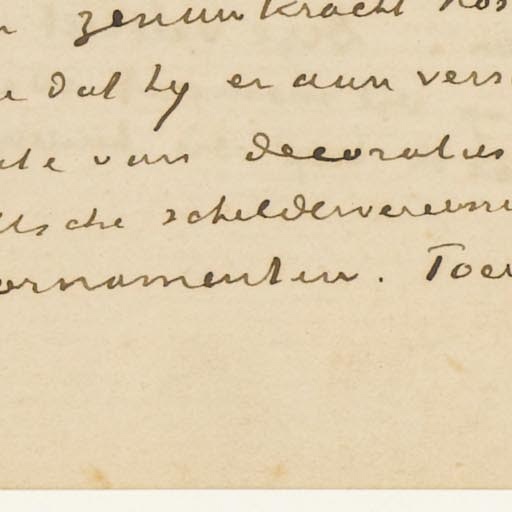 zenuwkracht kos
dat hy er aan vers
van decoraties
sche schildervereeni
ornamenten. Toen